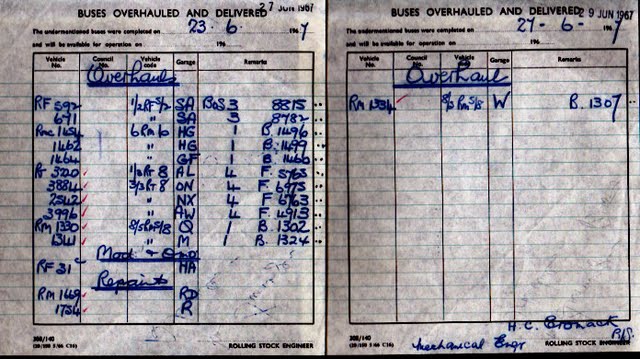 BUSES OVERHAULED AND DELIVERED 27 JUN 1967
The undermentioned buses were completed on 23. 6. 1967
and will be available for operation on 196
Vehicle No. Council No. Vehicle code Garage Remarks
Overhauls
RF 592 1/2RF5/2 SA BoS 3 8815
671 " SA 3 8782
RMC 1454 6 RM/6 HG 1 B. 1496
1462 " HG 1 B. 1499
1464 " GF 1 B. 1460
RT 3720 1/3RT 8 AL 4 F. 5765
3884 3/3RT 8 ON 4 F. 6975
2542 " NX 4 F. 6763
3996 " AW 4 F. 4913
RM 1330 8/5RM5/8 Q 1 B. 1302
1341 " M 1 B. 1324
RF 31 HA
Repaints
RM 1469 RD
1754 R
308/140
ROLLING STOCK ENGINEER
BUSES OVERHAULED AND DELIVERED 29 JUN 1967
The undermentioned buses were completed on 27- 6- 1967
and will be available for operation on 196
Vehicle No. Council No. Vehicle code Garage Remarks
Overhaul
RM 1334 8/5 RM5/8 W B. 1307
308/140
Mechanical Engr
ROLLING STOCK ENGINEER